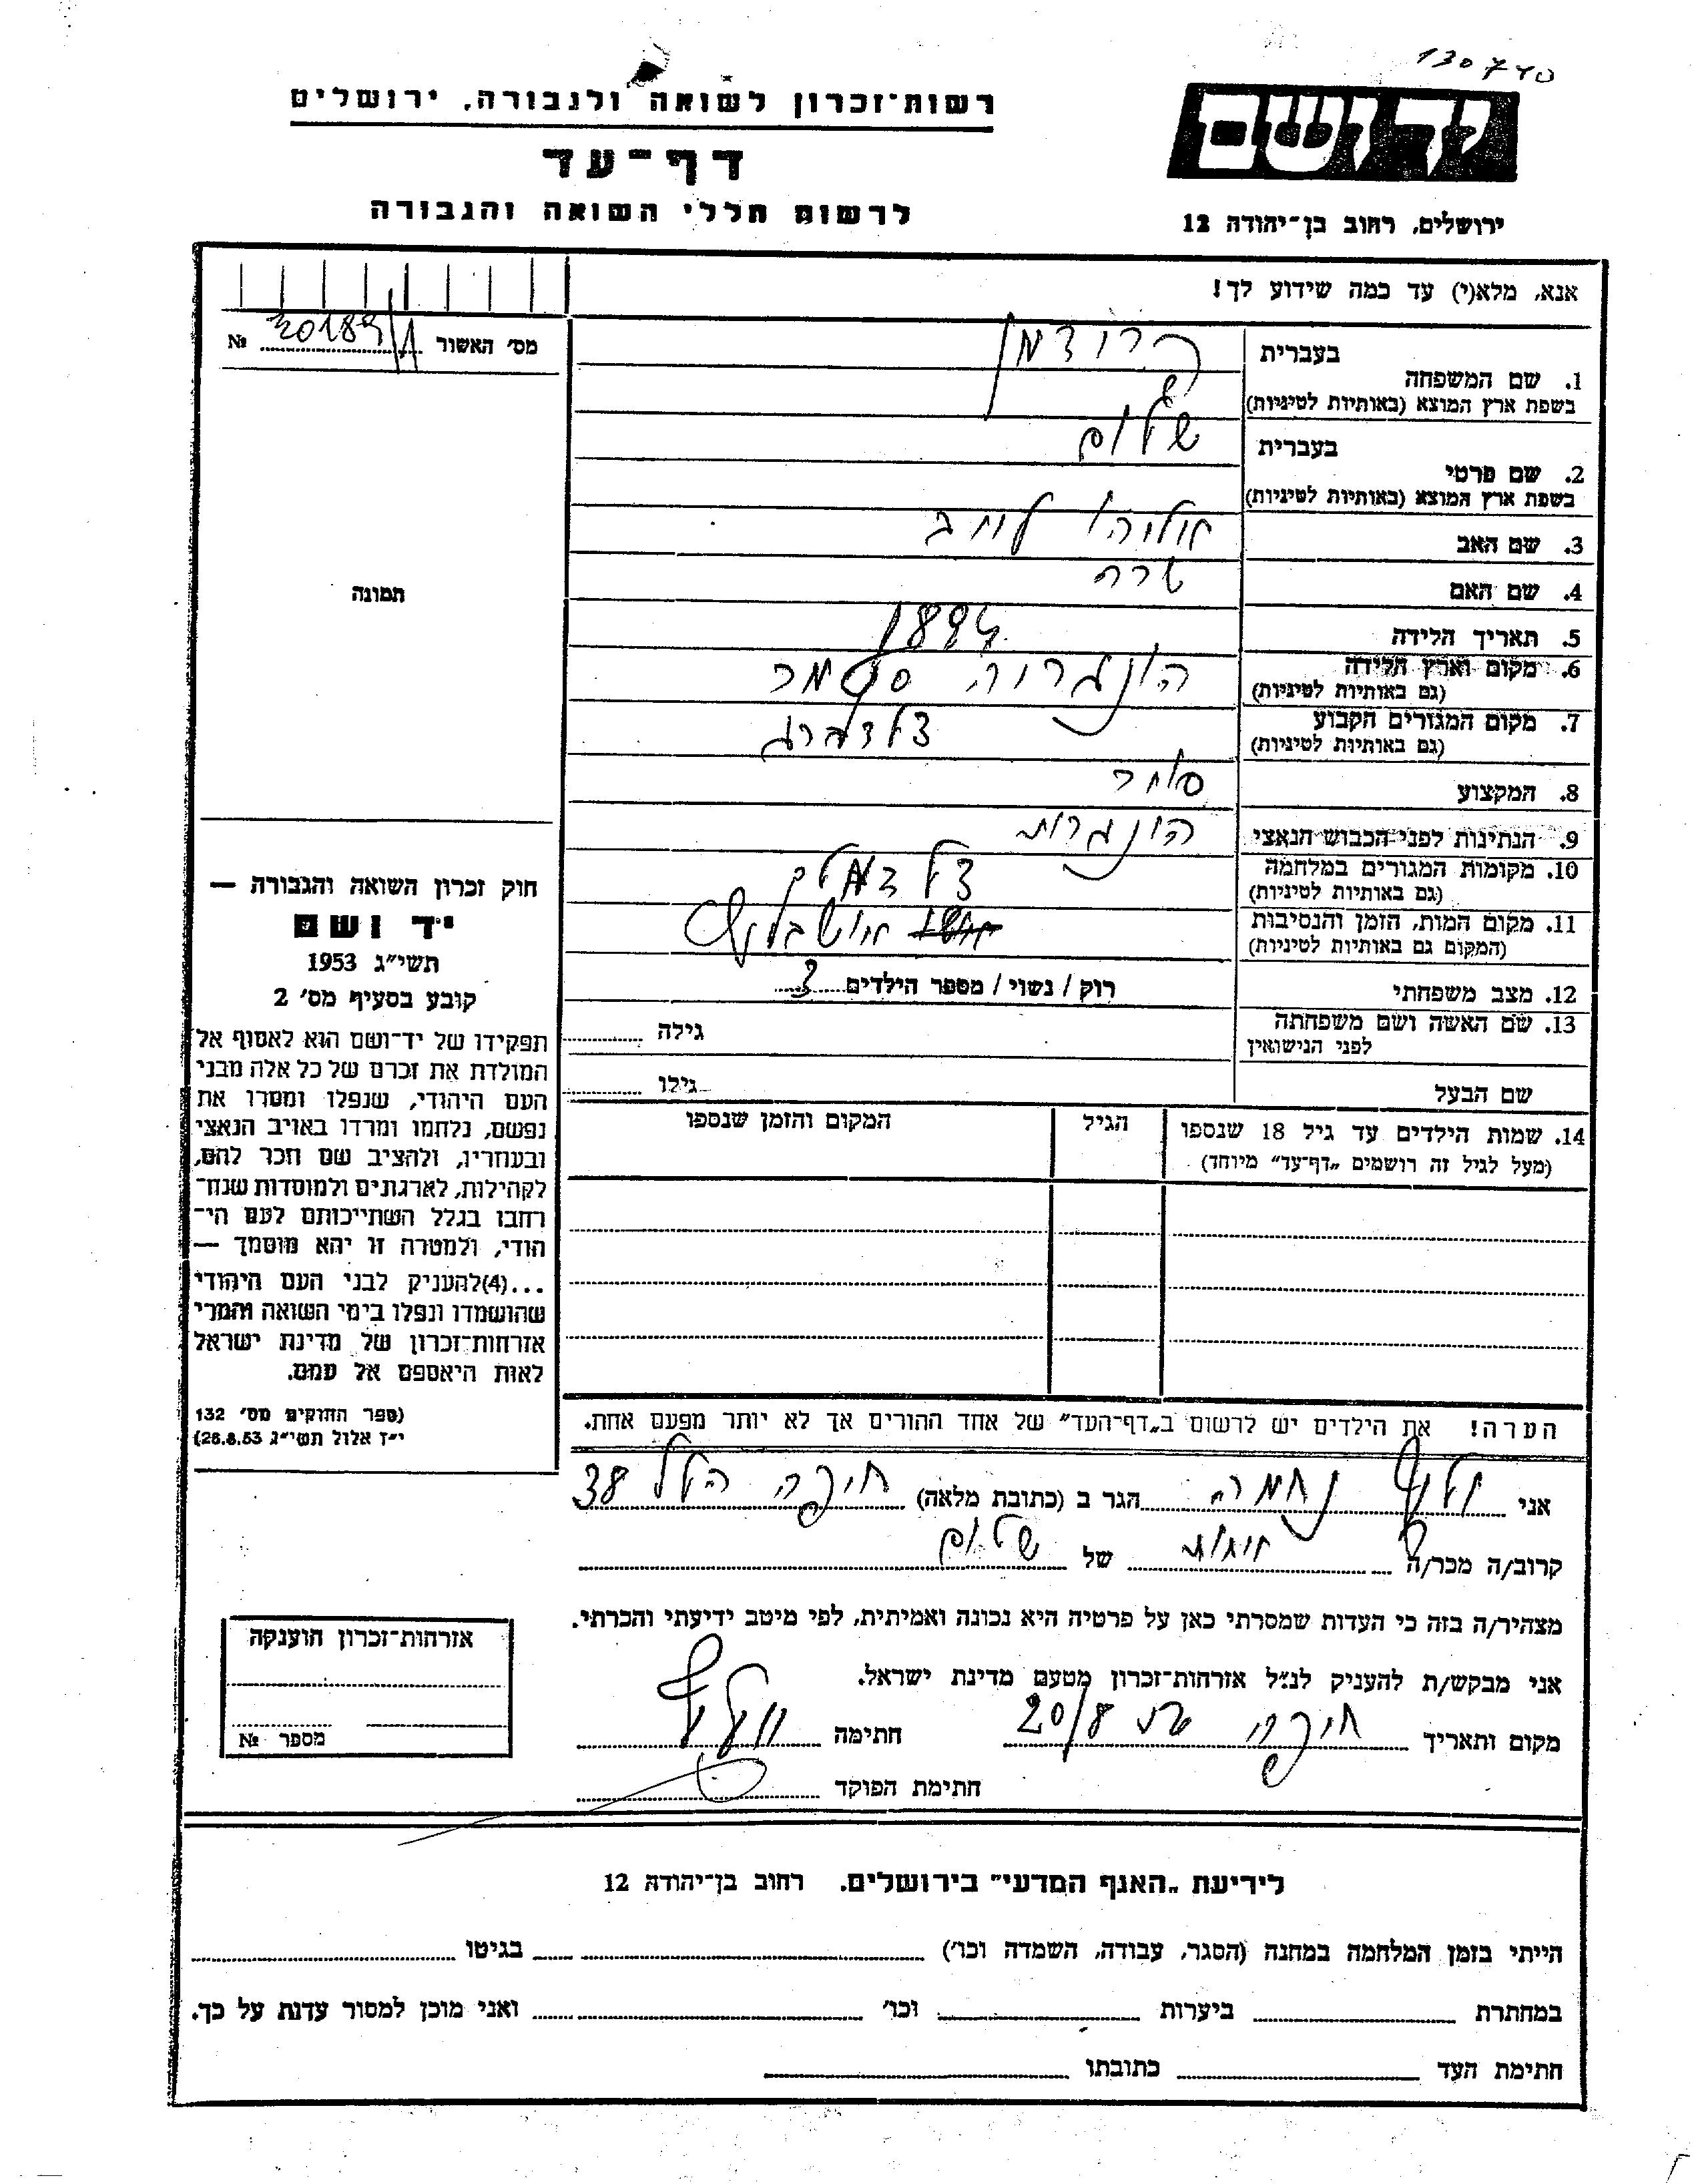 130740
יד ושם
ירושלים, רחוב בן־יהודה 12
רשות־זכרון לשואה ולגבורה, ירושלים
דף־עד
לרשום חללי השואה והגבורה
אנא, מלא(י) עד כמה שידוע לך!
מס' האשור № 30189/1
תמונה
1. שם המשפחה
בעברית
בשפת ארץ המוצא (באותיות לטיניות)
2. שם פרטי
בעברית שלום
בשפת ארץ המוצא (באותיות לטיניות)
3. שם האב
4. שם האם שרה
5. תאריך הלידה 1894
6. מקום וארץ הלידה
(גם באותיות לטיניות)
7. מקום המגורים הקבוע
(גם באותיות לטיניות)
8. המקצוע סוחר
9. הנתינות לפני הכבוש הנאצי הונגרית
10. מקומות המגורים במלחמה
(גם באותיות לטיניות)
11. מקום המות, הזמן והנסיבות
(המקום גם באותיות לטיניות)
12. מצב משפחתי רוק / נשוי / מספר הילדים 3
13. שם האשה ושם משפחתה
לפני הנישואין
גילה
שם הבעל גילו
14. שמות הילדים עד גיל 18 שנספו הגיל המקום והזמן שנספו
(מעל לגיל זה רושמים „דף־עד" מיוחד)
הערה! את הילדים יש לרשום ב„דף־העד" של אחד ההורים אך לא יותר מפעם אחת.
חוק זכרון השואה והגבורה —
יד ושם
תשי"ג 1953
קובע בסעיף מס' 2
תפקידו של יד־ושם הוא לאסוף אל
המולדת את זכרם של כל אלה מבני
העם היהודי, שנפלו ומסרו את
נפשם, נלחמו ומרדו באויב הנאצי
ובעוזריו, ולהציב שם וזכר להם,
לקהילות, לארגונים ולמוסדות שנח־
רבו בגלל השתייכותם לעם הי־
הודי, ולמטרה זו יהא מוסמך —
...(4)להעניק לבני העם היהודי
שהושמדו ונפלו בימי השואה והמרי
אזרחות־זכרון של מדינת ישראל
לאות היאספם אל עמם.
(ספר החוקים מס' 132
י"ז אלול תשי"ג 28.8.53)
אני נחמה הגר ב (כתובת מלאה) חיפה הלל 38
קרוב/ה מכר/ה של שלום
מצהיר/ה בזה כי העדות שמסרתי כאן על פרטיה היא נכונה ואמיתית, לפי מיטב ידיעתי והכרתי.
אני מבקש/ת להעניק לנ"ל אזרחות־זכרון מטעם מדינת ישראל.
מקום ותאריך חיפה 20/8 חתימה
חתימת הפוקד
אזרחות־זכרון הוענקה
מספר №
לידיעת „האגף המדעי" בירושלים. רחוב בן־יהודה 12
הייתי בזמן המלחמה במחנה (הסגר, עבודה, השמדה וכו') בגיטו
במחתרת ביערות וכו' ואני מוכן למסור עדות על כך.
חתימת העד כתובתו